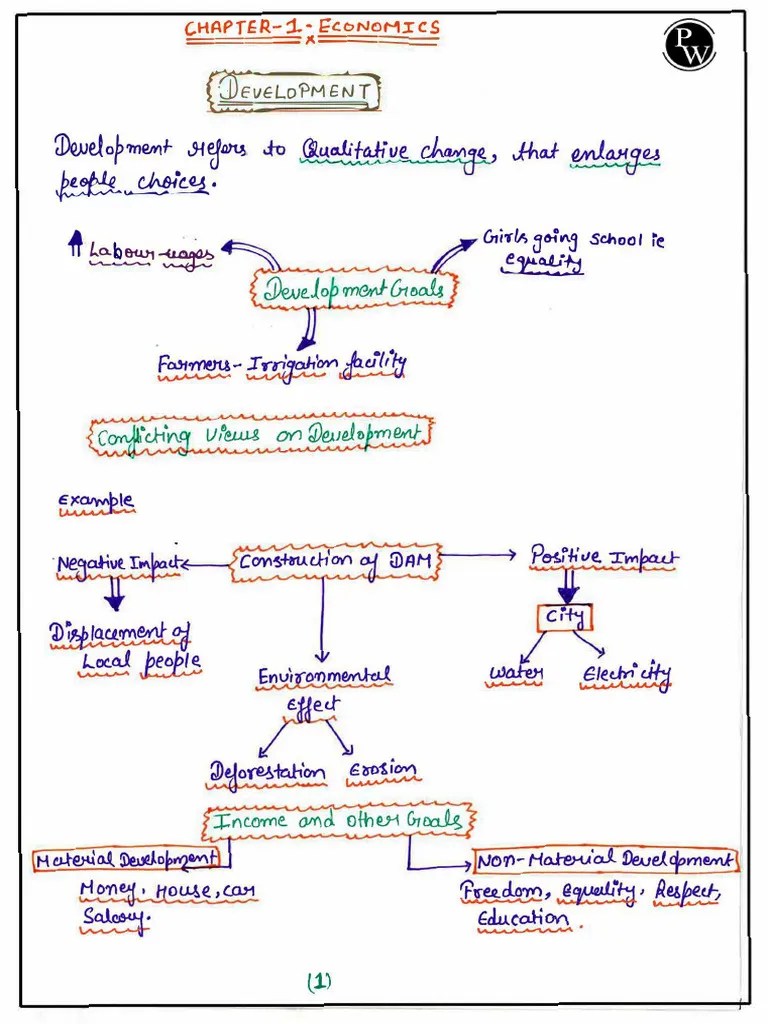 CHAPTER-1-ECONOMICS
x
PW
DEVELOPMENT
Development refers to Qualitative change, that enlarges
people choices.
Labour-wages
Girls going school ie
equality
Development Goals
Farmers-Irrigation facility
Conflicting Views on Development
Example
Negative Impact
Construction of DAM
Positive Impact
City
Displacement of
Local people
Water
Electricity
Environmental
Effect
Deforestation
Erosion
Income and other Goals
Material Development
Non-Material Development
Money, House, car
Salary.
Freedom, equality, Respect,
Education.
(1)